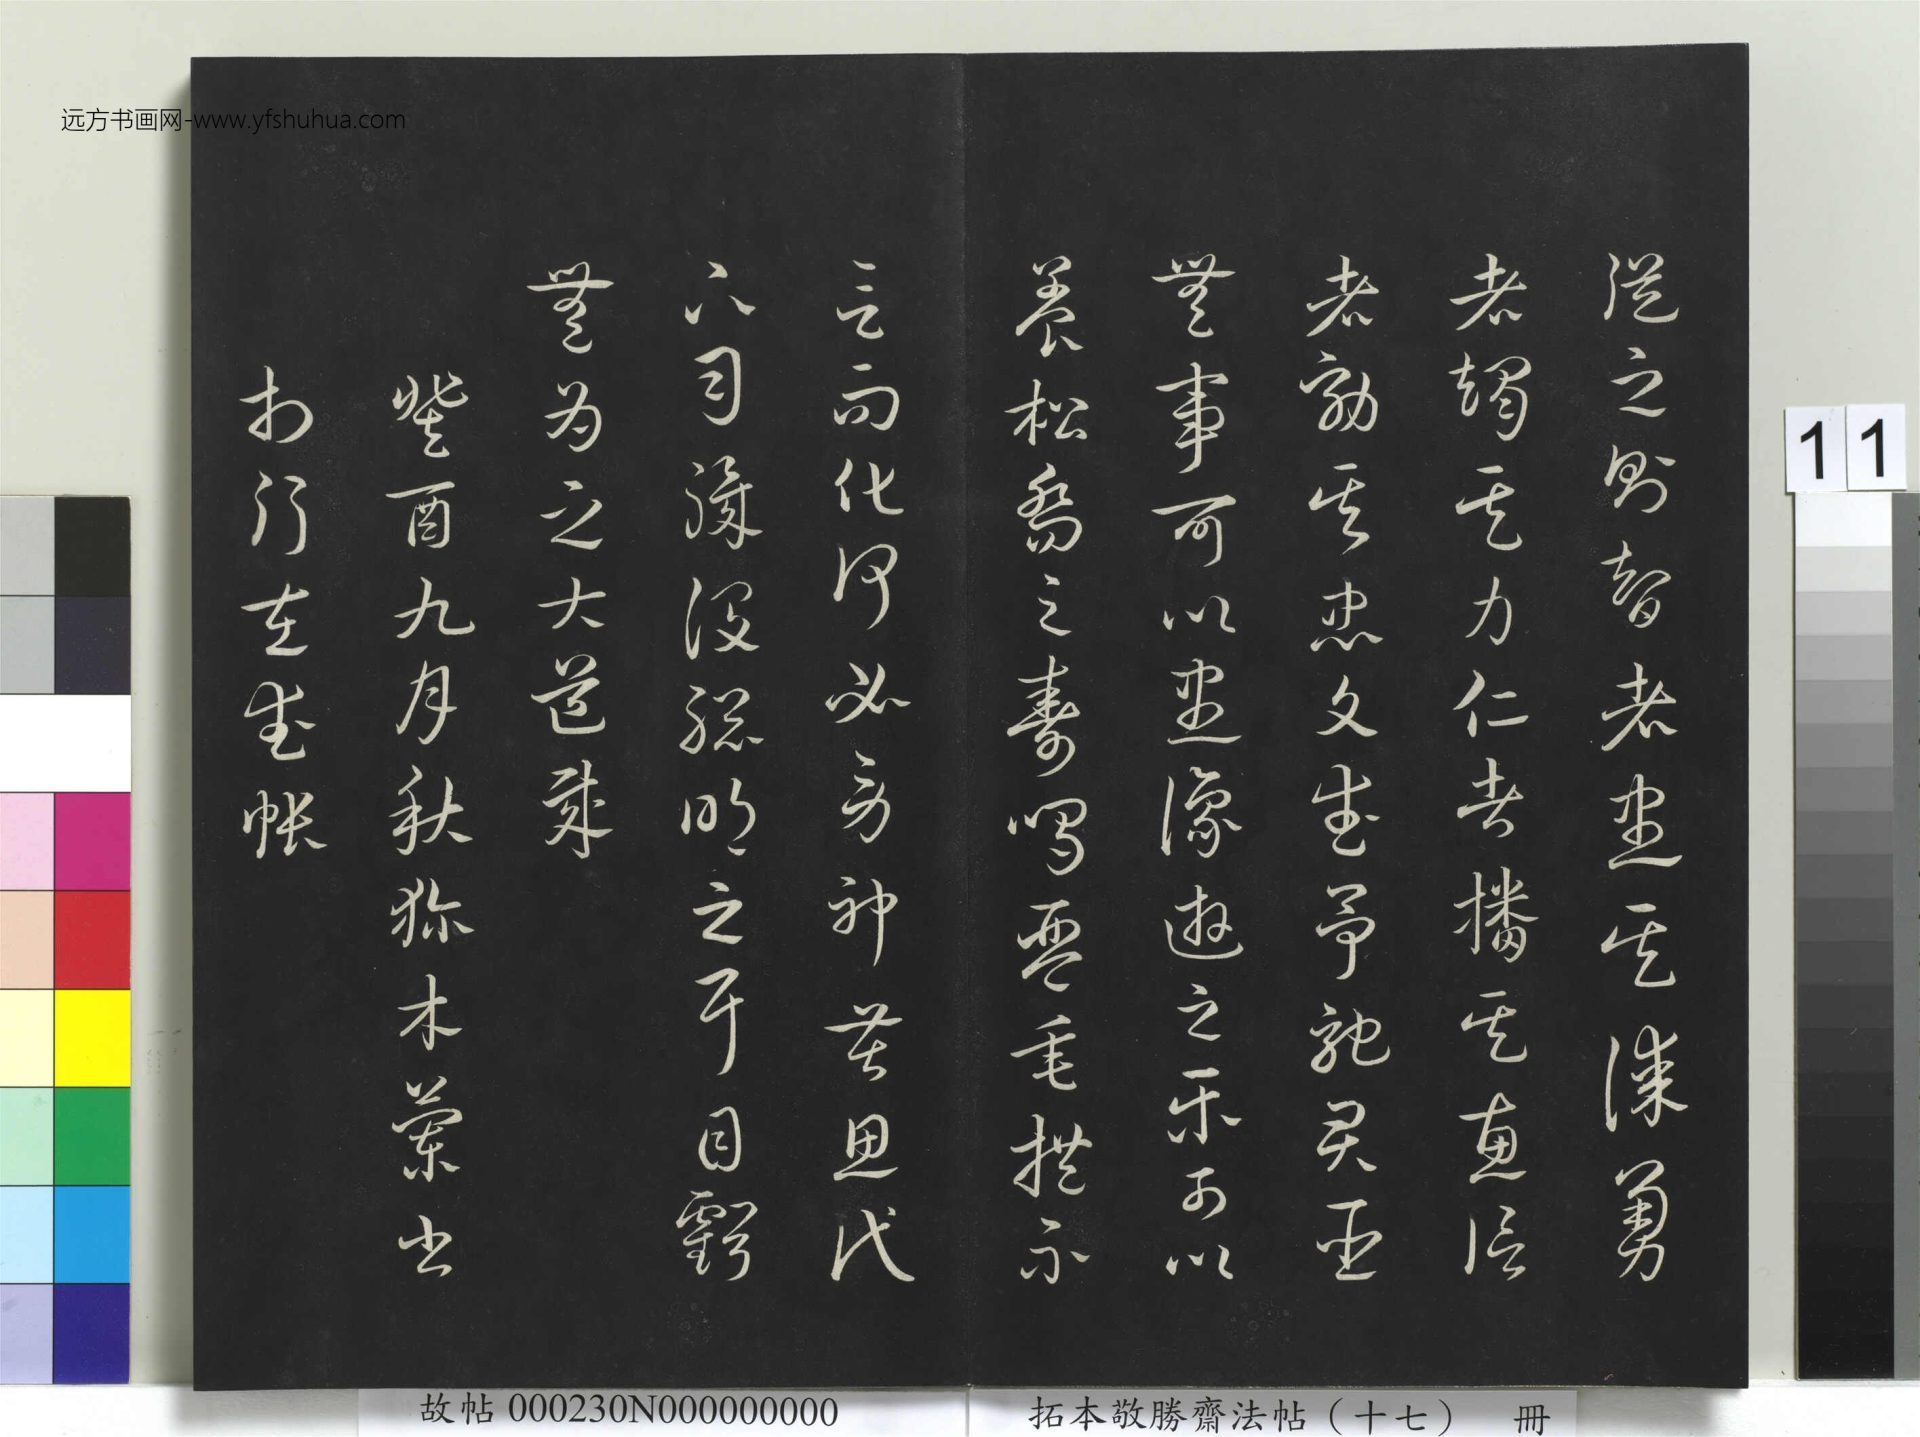 远方书画网-www.yfshuhua.com
從之則智者盡其謀勇
者竭其力仁者播其惠信
者効其忠文武爭馳君臣
無事可以盡豫遊之樂可以
養松喬之壽鳴琴垂拱不
言而化何必勞神苦思代
下司職役聰明之耳目虧
無為之大道哉
癸酉九月秋獮木蘭書
於行在武帳
11
故帖 000230N000000000
拓本敬勝齋法帖（十七） 冊